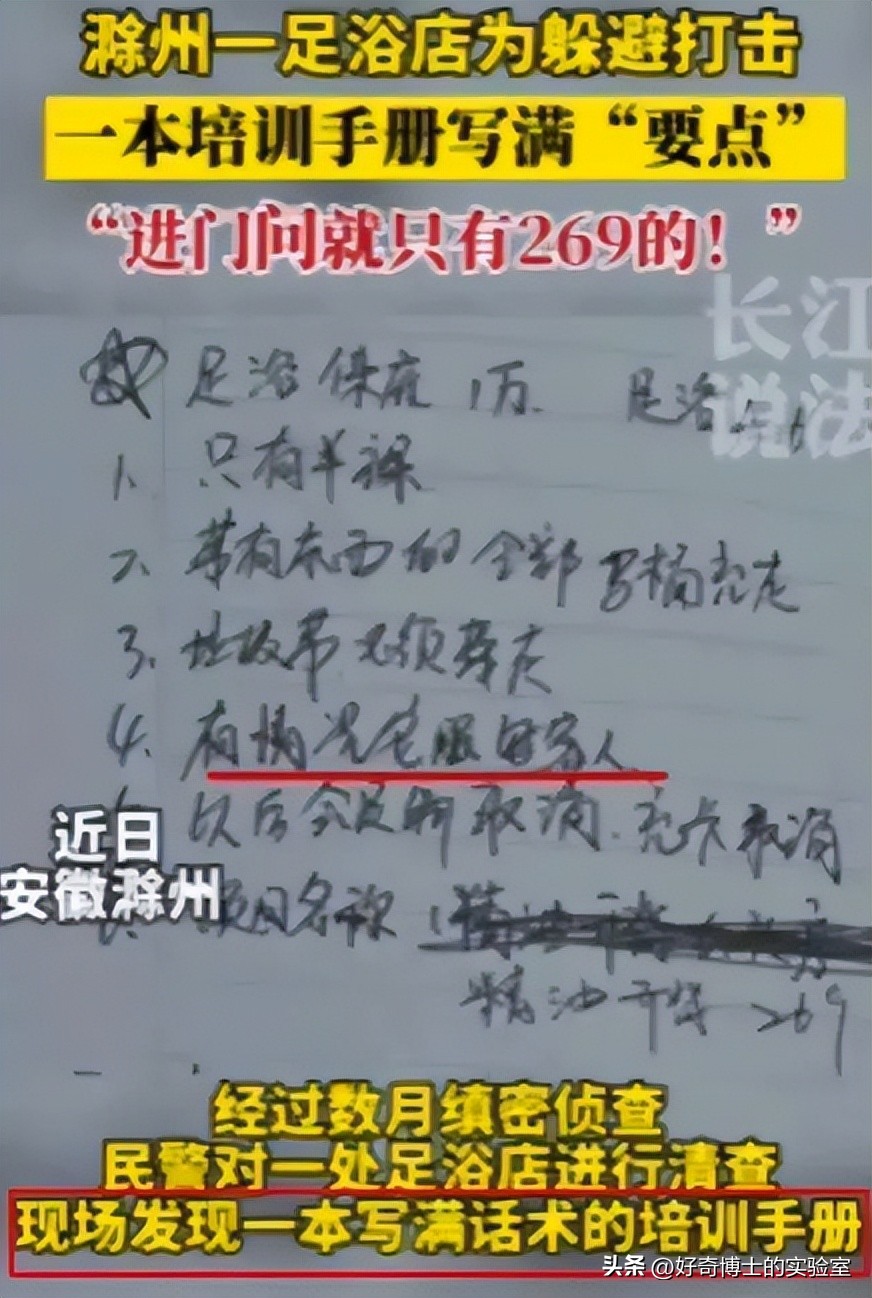 滁州一足浴店为躲避打击
一本培训手册写满“要点”
“进门问就只有269的！”
长江
说法
足浴保底1万. 足浴
1、只有半裸
2、带有东西的全部 马桶冲走
3、垃圾带必须弃走
4、有情况
以后会员制取消、充卡取消
近日
安徽滁州
项目名称
精油开背 269
经过数月缜密侦查
民警对一处足浴店进行清查
现场发现一本写满话术的培训手册
头条 @好奇博士的实验室